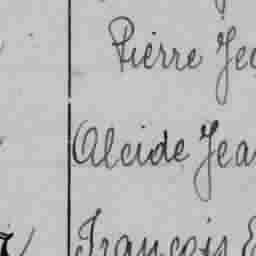 Pierre Je
Alcide Jea
François E